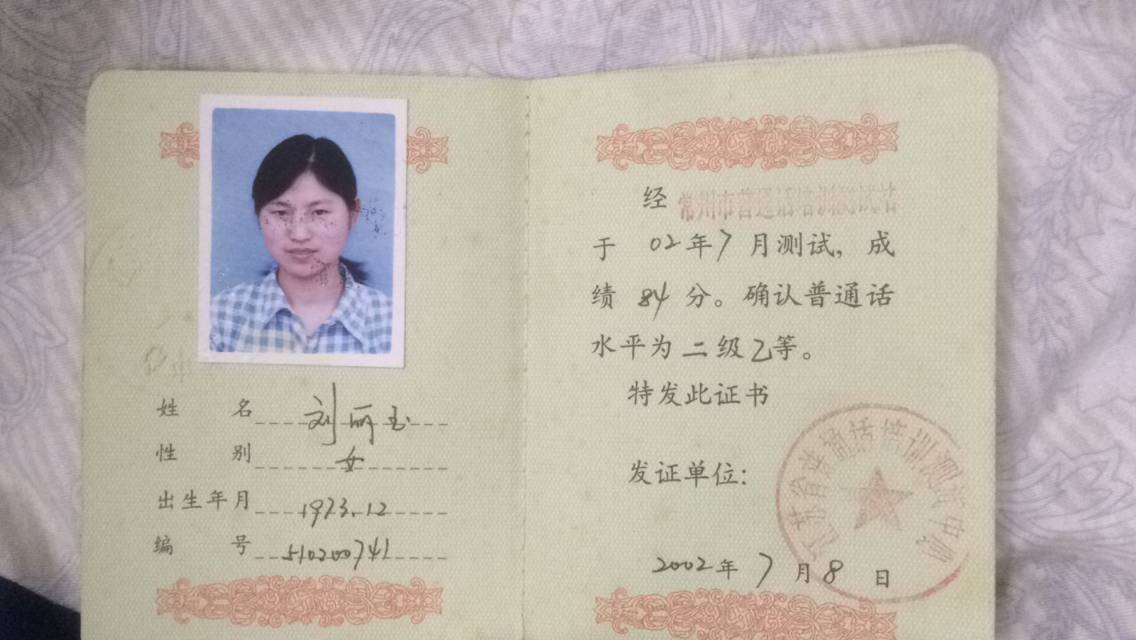 姓 名 刘丽玉
性 别 女
出生年月 1973.12
编 号 510200741
经 常州市普通话培训测试站
于 02年7月测试,成
绩 84 分。确认普通话
水平为 二级乙等。
特发此证书
发证单位:
江苏省普通话培训测试中心
2002年 7 月 8 日